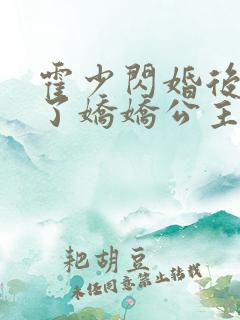 霍少閃婚後
了嬌嬌公主
耙胡豆
未经同意禁止转载